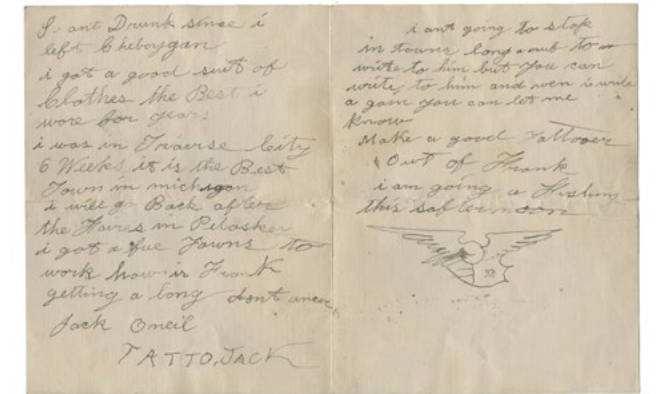 I ant Drunk since i
left Cheboygan
i got a good suit of
Clothes the Best i
wore for years
i was in Traverse City
6 Weeks it is the Best
Town in michigan
i will go Back after
the Fares in Petosker
i got a fue Towns to
work how is Frank
getting a long dont
Jack Oneil
TATTO, JACK
i ant going to stop
in towns long a nuf to
write to him but you can
write to him and wen i write
a gain you can let me
Know
Make a good Tattooer
Out of Frank
i am going a Fishing
this